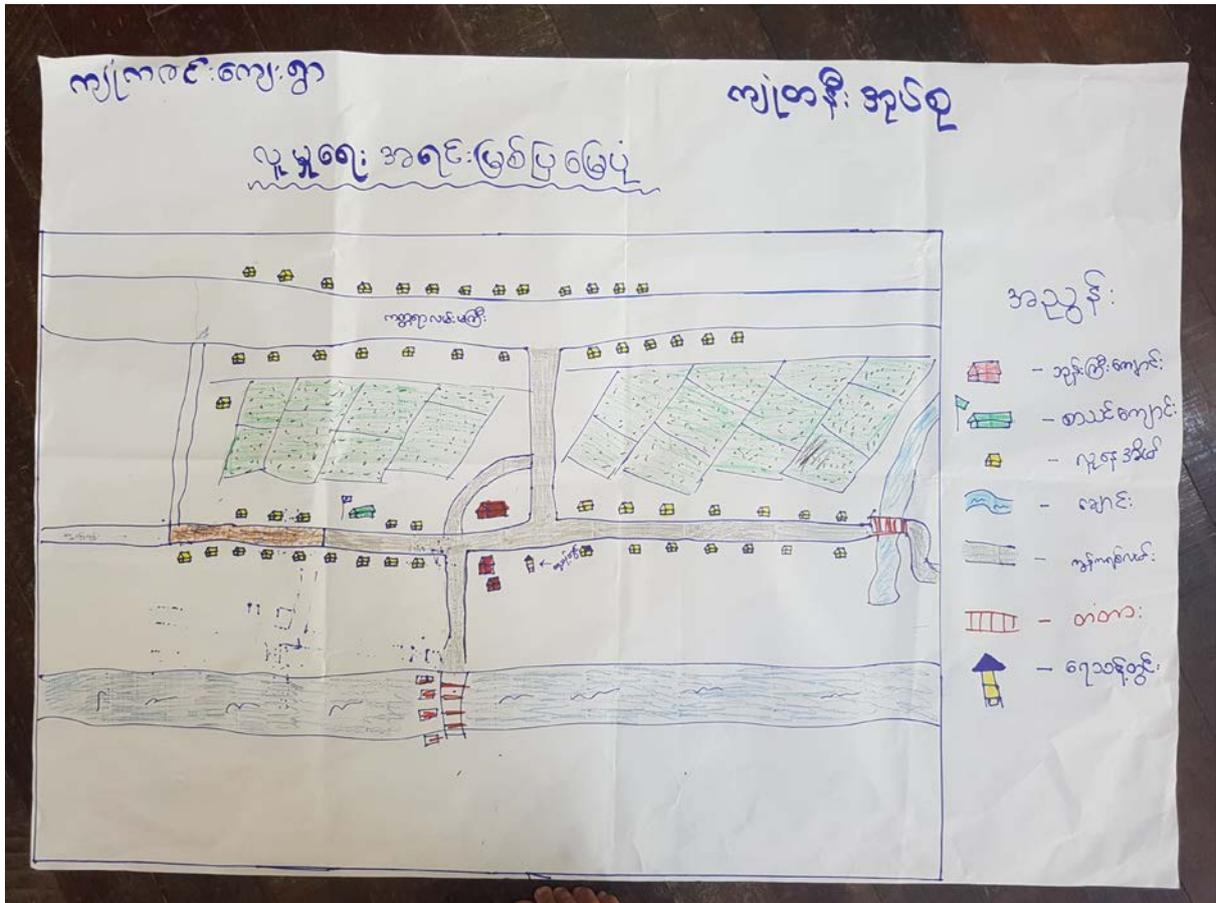 ကျုံကဒင်းကျေးရွာ
ကျုံတနီး အုပ်စု
လူမှုရေး အရင်းမြစ်ပြ မြေပုံ
ကတ္တရာလမ်းမကြီး
အညွှန်း
- ဘုန်းကြီးကျောင်း
- စာသင်ကျောင်း
- လူနေအိမ်
- ချောင်း
- ကွန်ကရစ်လမ်း
- တံတား
- ရေသန့်တွင်း